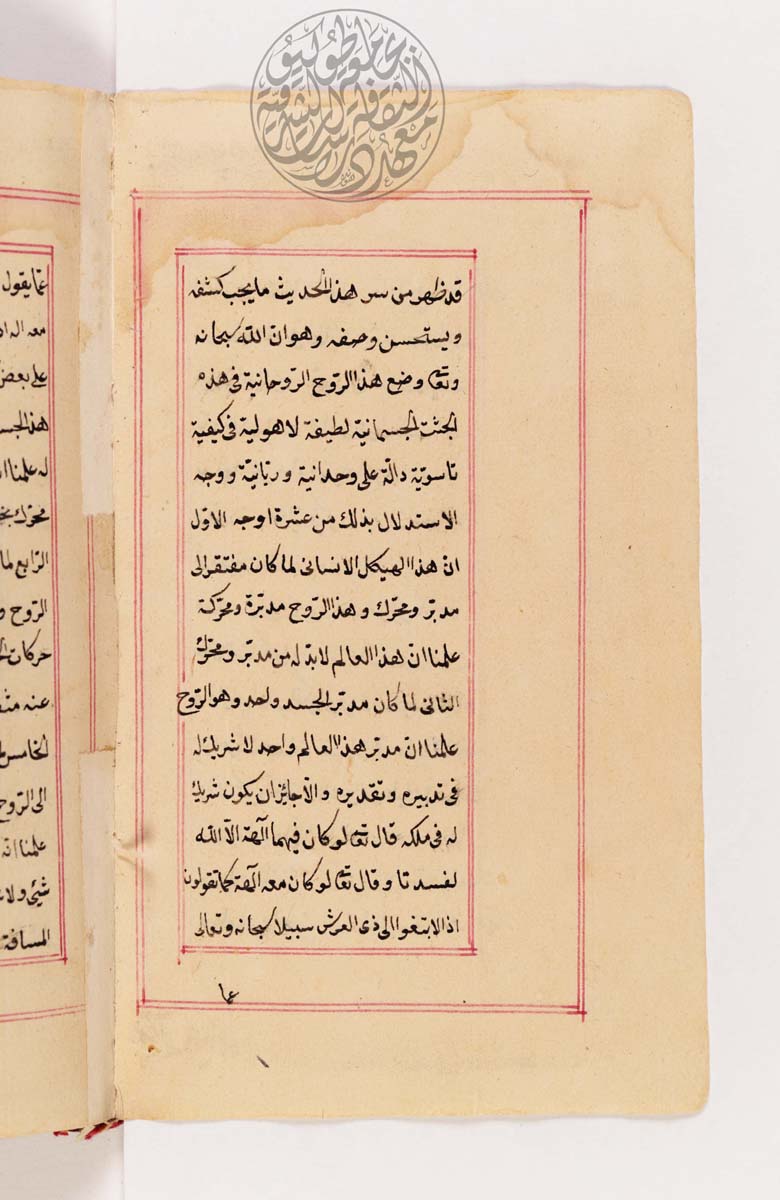 قد ظهر من سر هذا الحديث ما يجب كشفه
ويستحسن وصفه وهو ان الله سبحانه
وتع وضع هذا الروح الروحانية فى هذه
الجثت الجسمانية لطيفة لاهولية فى كيفية
ناسويّة دالّة على وحدانية وربّانيّة ووجه
الاستدلال بذلك من عشرة اوجه الاوّل
انّ هذا الهيكل الانسانى لما كان مفتقر الى
مدبّر ومحرّك وهذا الرّوح مدبّرة ومحرّكة
علمنا انّ هذا العالم لابدّ له من مدبّر ومحرّك
الثانى لما كان مدبّر الجسد واحد وهو الرّوح
علمنا انّ مدبّر هذا العالم واحد لا شريك له
فى تدبيره وتقديره والّا جايز ان يكون شريك
له فى ملكه قال تع لو كان فيهما آلهة الّا الله
لفسدتا وقال تع لو كان معه آلهة كما تقولون
اذا لابتغوا الى ذى العرش سبيلا سبحانه وتعالى
عما
عمّا يقول
معه اله
على بعض
هذا الجسد
له علمنا
محرّك
الرّابع لما
الرّوح
حركات
عنه
الخامس
الى الرّوح
علمنا انّه
شئ ولا
المسافة
جامعة طوكيو
معهد دراسات الثقافة الشرقية